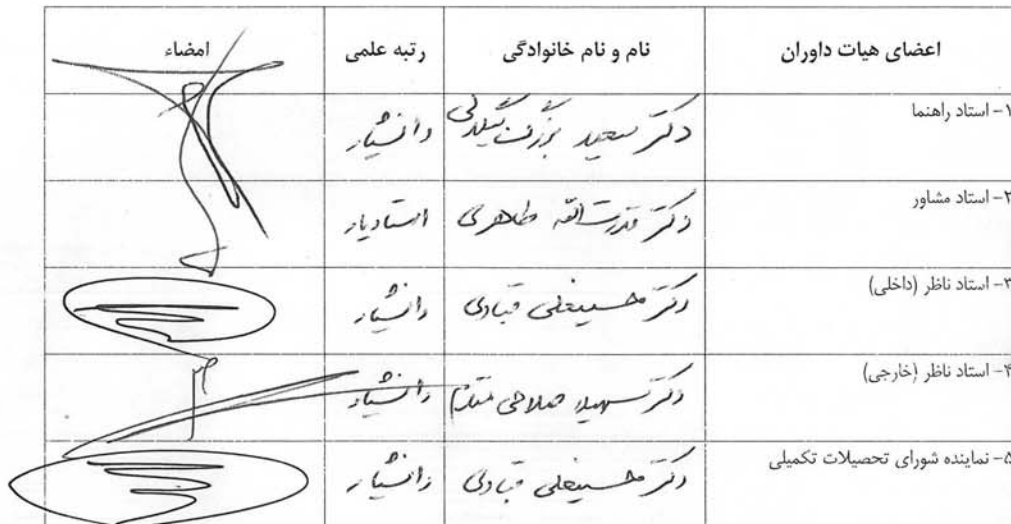 اعضای هیات داوران نام و نام خانوادگی رتبه علمی امضاء
۱- استاد راهنما دکتر سعید بزرگ بیگدلی دانشیار
۲- استاد مشاور دکتر قدرت الله طاهری استادیار
۳- استاد ناظر (داخلی) دکتر حسینعلی قبادی دانشیار
۴- استاد ناظر (خارجی) دکتر سهیلا صلاحی دانشیار
۵- نماینده شورای تحصیلات تکمیلی دکتر حسینعلی قبادی دانشیار